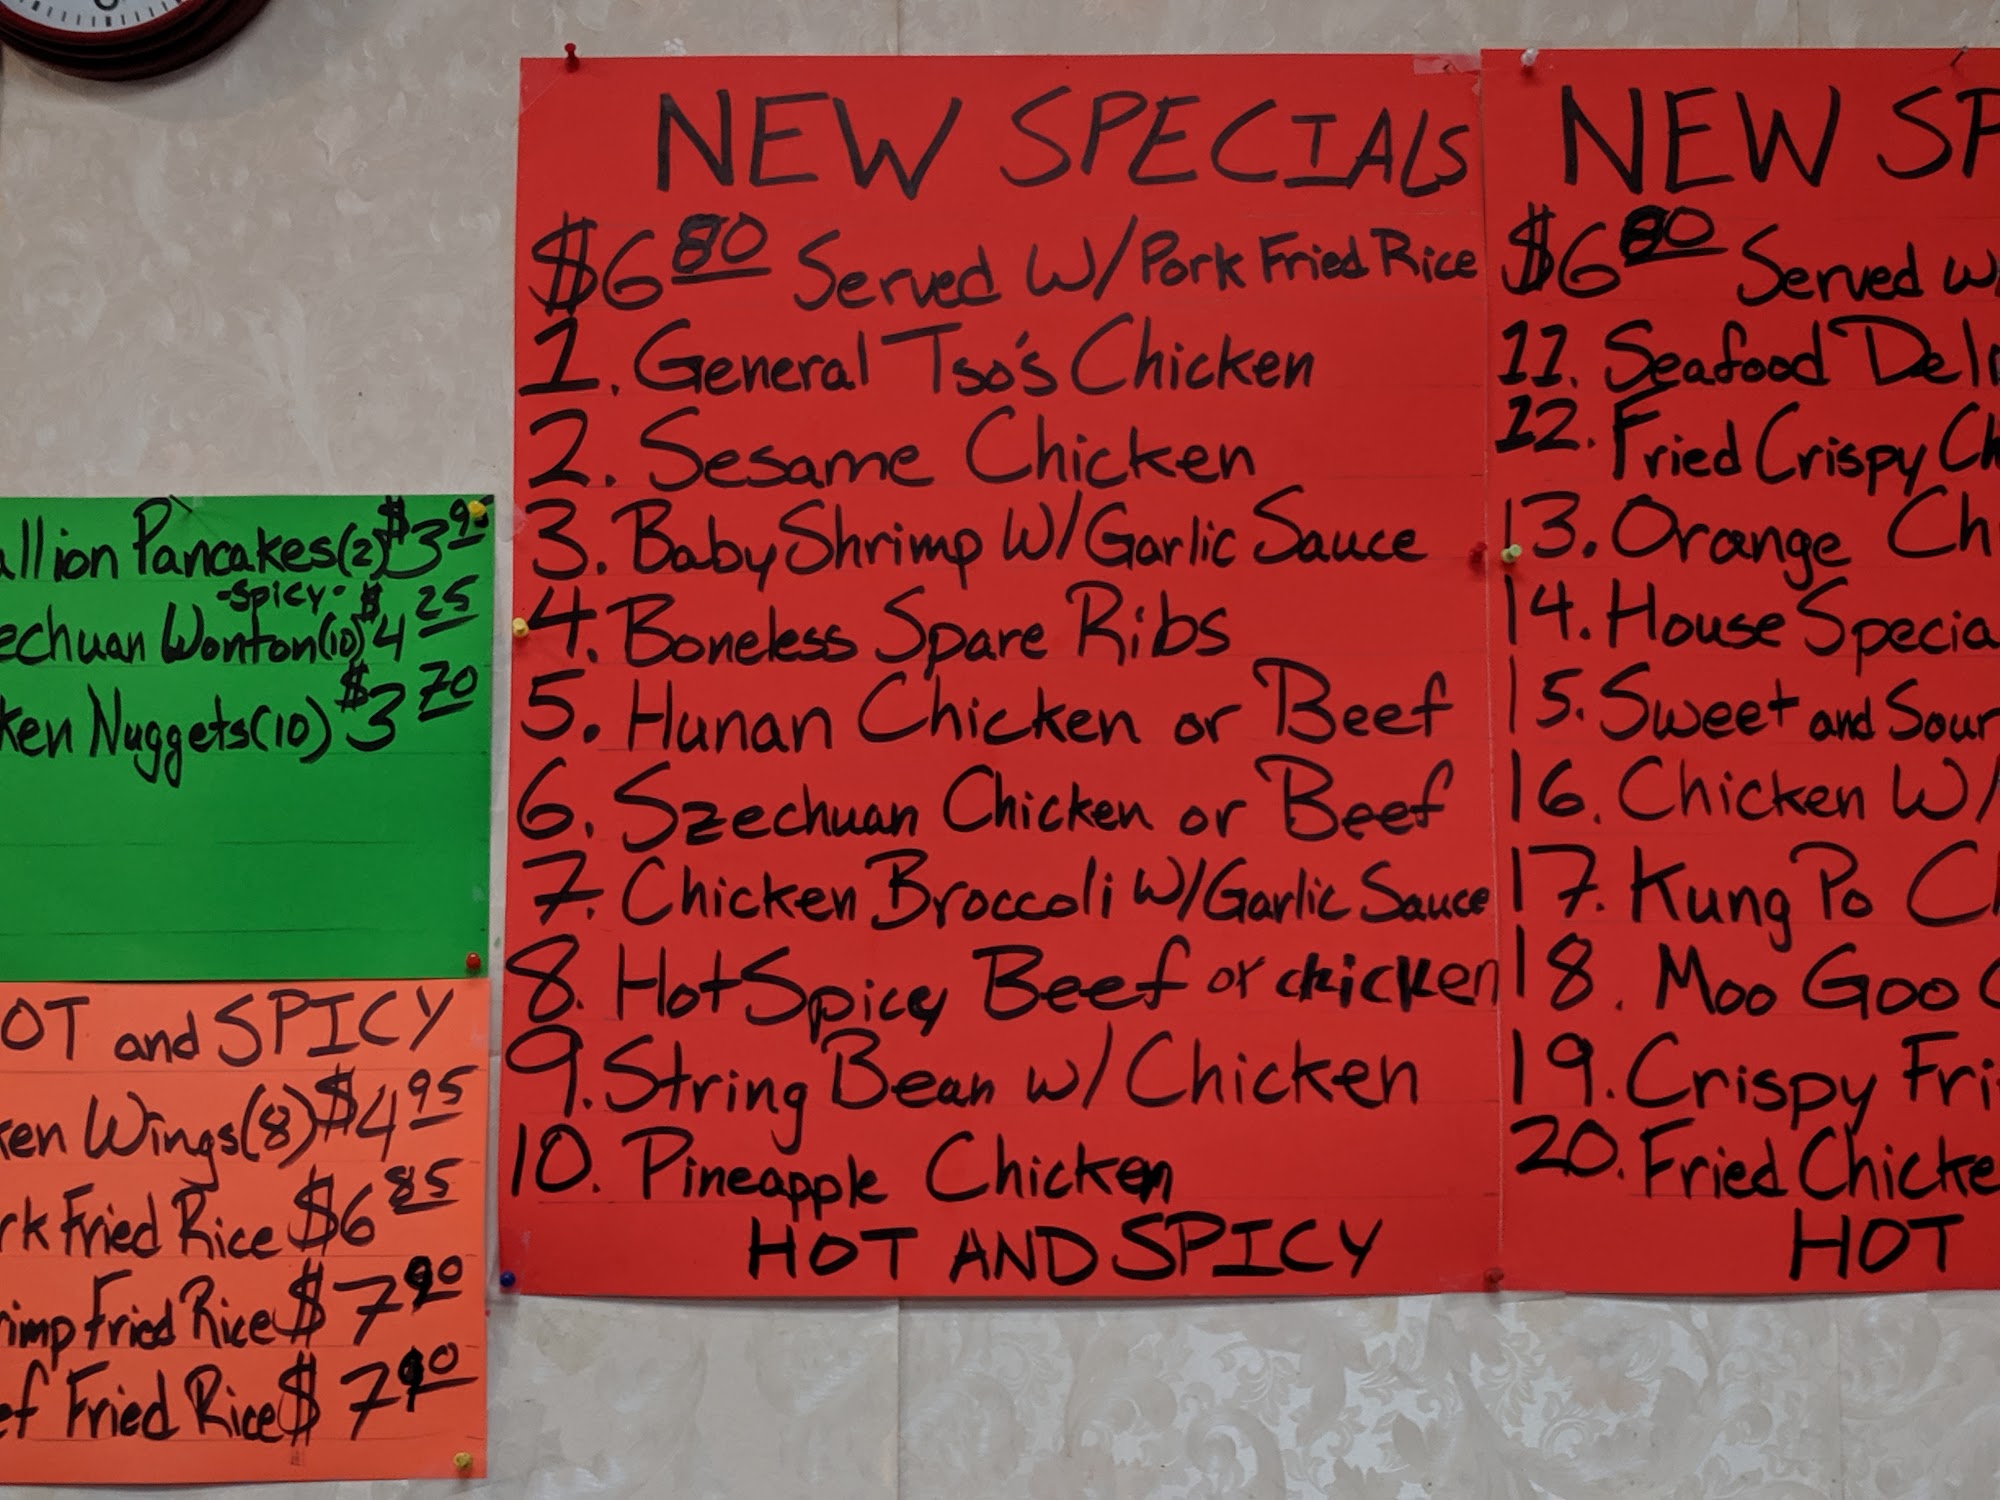 NEW SPECIALS
$6 80 Served W/Pork Fried Rice
1. General Tso's Chicken
2. Sesame Chicken
3. Baby Shrimp W/Garlic Sauce
4. Boneless Spare Ribs
5. Hunan Chicken or Beef
6. Szechuan Chicken or Beef
7. Chicken Broccoli W/Garlic Sauce
8. Hot Spicy Beef or chicken
9. String Bean w/ Chicken
10. Pineapple Chicken
HOT AND SPICY
NEW SP
$6 80 Served w/
11. Seafood Del
12. Fried Crispy Ch
13. Orange Ch
14. House Specia
15. Sweet and Sour
16. Chicken W/
17. Kung Po C
18. Moo Goo
19. Crispy Fri
20. Fried Chicke
HOT
allion Pancakes(2) $3 95
-Spicy-
echuan Wonton(10) $4 25
ken Nuggets(10) $3 70
OT and SPICY
ken Wings(8) $4 95
rk Fried Rice $6 85
rimp Fried Rice $7 90
ef Fried Rice $7 90